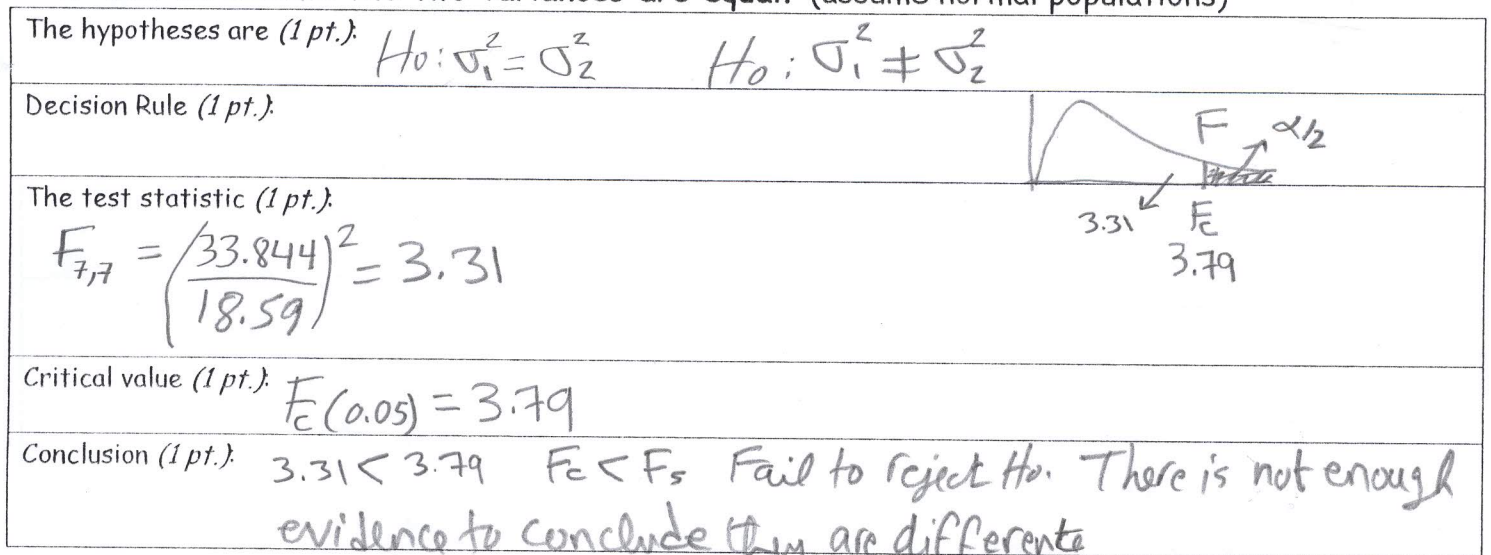 The hypotheses are (1 pt.): Ho: σ₁² = σ₂² Ho: σ₁² ≠ σ₂²
Decision Rule (1 pt.):
F α/2
3.31 Fc
3.79
The test statistic (1 pt.):
F₇,₇ = (33.844/18.59)² = 3.31
Critical value (1 pt.): Fc(0.05) = 3.79
Conclusion (1 pt.): 3.31 < 3.79 Fc < Fs Fail to reject Ho. There is not enough
evidence to conclude they are differente